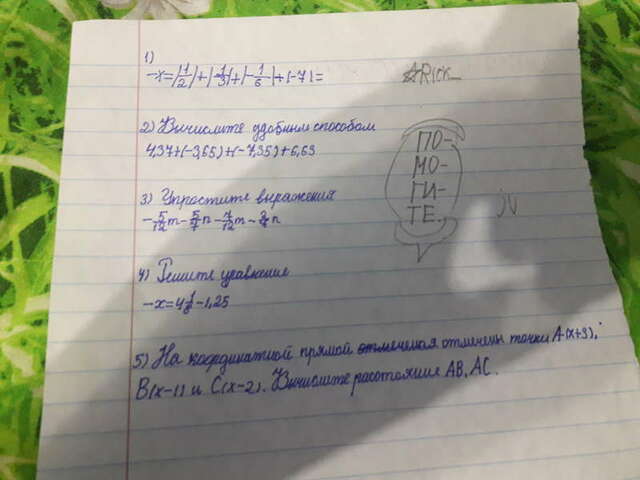 1)
-x=|1/2|+|-1/3|+|-1/6|+|-7|=
2) Вычислите удобным способом
4,37+(-3,65)+(-7,35)+6,63
3) Упростите выражения
-5/12m-5/7n-7/12m-2/7n
4) Решите уравнение
-x=4 -1,25
5) На координатной прямой отмечены точки A(x+3),
B(x-1) и C(x-2). Вычислите расстояния AB, AC.
ПО-
МО-
ГИ-
ТЕ.